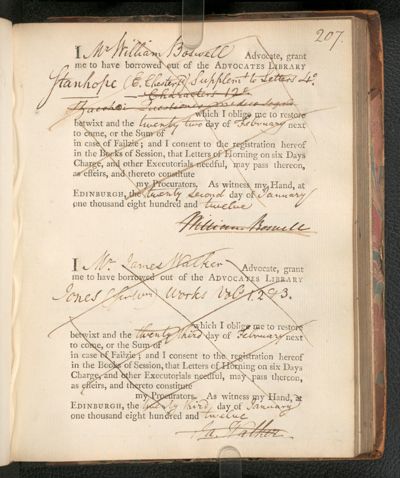 207.
I Mr William Boswell Advocate, grant
me to have borrowed out of the ADVOCATES LIBRARY
Stanhope (E. Chesterfd) Supplemt to Letters 4o.
Characters 12o
which I oblige me to restore
betwixt and the twenty two day of February next
to come, or the Sum of
in case of Failzie; and I consent to the registration hereof
in the Books of Session, that Letters of Horning on six Days
Charge, and other Executorials needful, may pass thereon,
as effeirs, and thereto constitute
my Procurators. As witness my Hand, at
EDINBURGH, the twenty second day of January
one thousand eight hundred and twelve
William Boswell
I Mr James Walker Advocate, grant
me to have borrowed out of the ADVOCATES LIBRARY
Jones Works Vol. 1. 2 & 3.
which I oblige me to restore
betwixt and the twenty third day of February next
to come, or the Sum of
in case of Failzie; and I consent to the registration hereof
in the Books of Session, that Letters of Horning on six Days
Charge, and other Executorials needful, may pass thereon,
as effeirs, and thereto constitute
my Procurators. As witness my Hand, at
EDINBURGH, the twenty third day of January
one thousand eight hundred and twelve
Ja. Walker